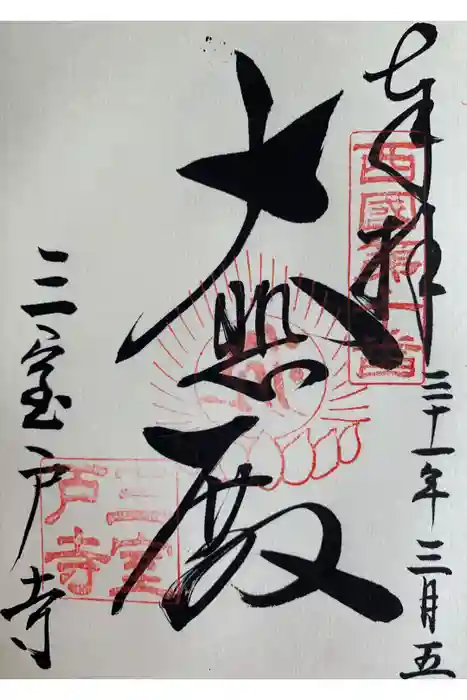 奉拝
西國第十番
三十一年三月五
大悲殿
三室戸寺
三室
戸寺